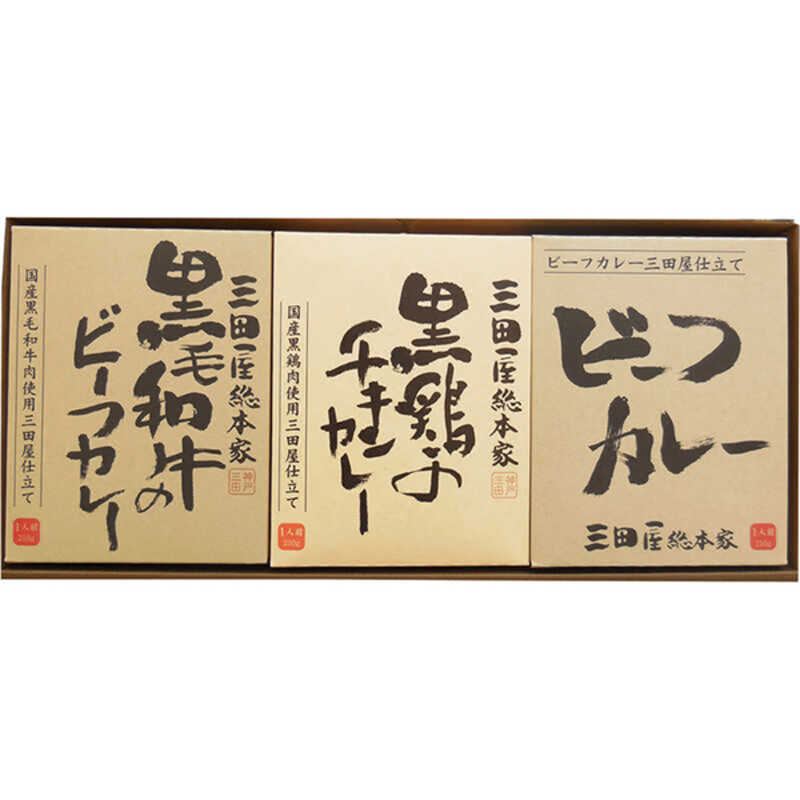 三田屋総本家
黒毛和牛の
ビーフカレー
国産黒毛和牛肉使用三田屋仕立て
神戸
三田
1人前
210g
三田屋総本家
黒鶏の
チキンカレー
国産黒鶏肉使用三田屋仕立て
神戸
三田
1人前
210g
ビーフカレー三田屋仕立て
ビーフ
カレー
三田屋総本家
1人前
210g